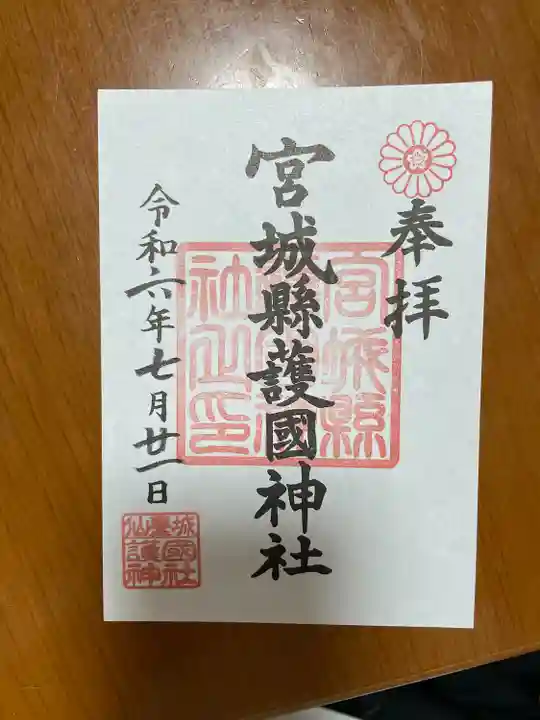 奉拝
宮城縣護國神社
宮城縣護國神社之印
令和六年七月廿一日
仙臺城護國神社